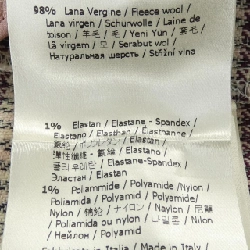 98% Lana Vergine / Fleece wool /
Lana virgen / Schurwolle / Laine de
toison / 羊毛 / 毛 / Yeni Yün /
lã virgem / 모 / Serabut wol /
Натуральная шерсть / Střižní vlna
1% Elastan / Elastane - Spandex /
Elastano / Elasthan / Elasthanne
彈性纖維 / Elastano
엘라스탄 / Elastane-Spandex /
Эластан / Elastan
1% Poliammide / Polyamide / Nylon /
Poliamida / Polyamid / Polyamide/
Nylon / 锦纶 / ナイロン / Naylon / 尼龍
/ Poliamida ou nylon / 나일론 / Nilon
/ Нейлон / Polyamid
in Italia / Made in Italy